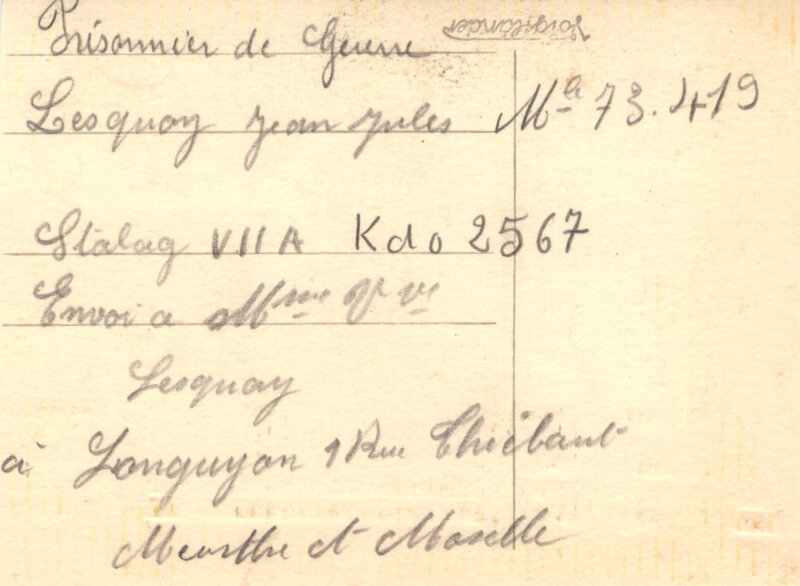 Prisonnier de Guerre
Voigtländer
Lesquoy Jean Jules Mle 73.419
Stalag VII A Kdo 2567
Envoi a Mme Vve
Lesquoy
à Longuyon 1 Rue Thiébaut
Meurthe et Moselle